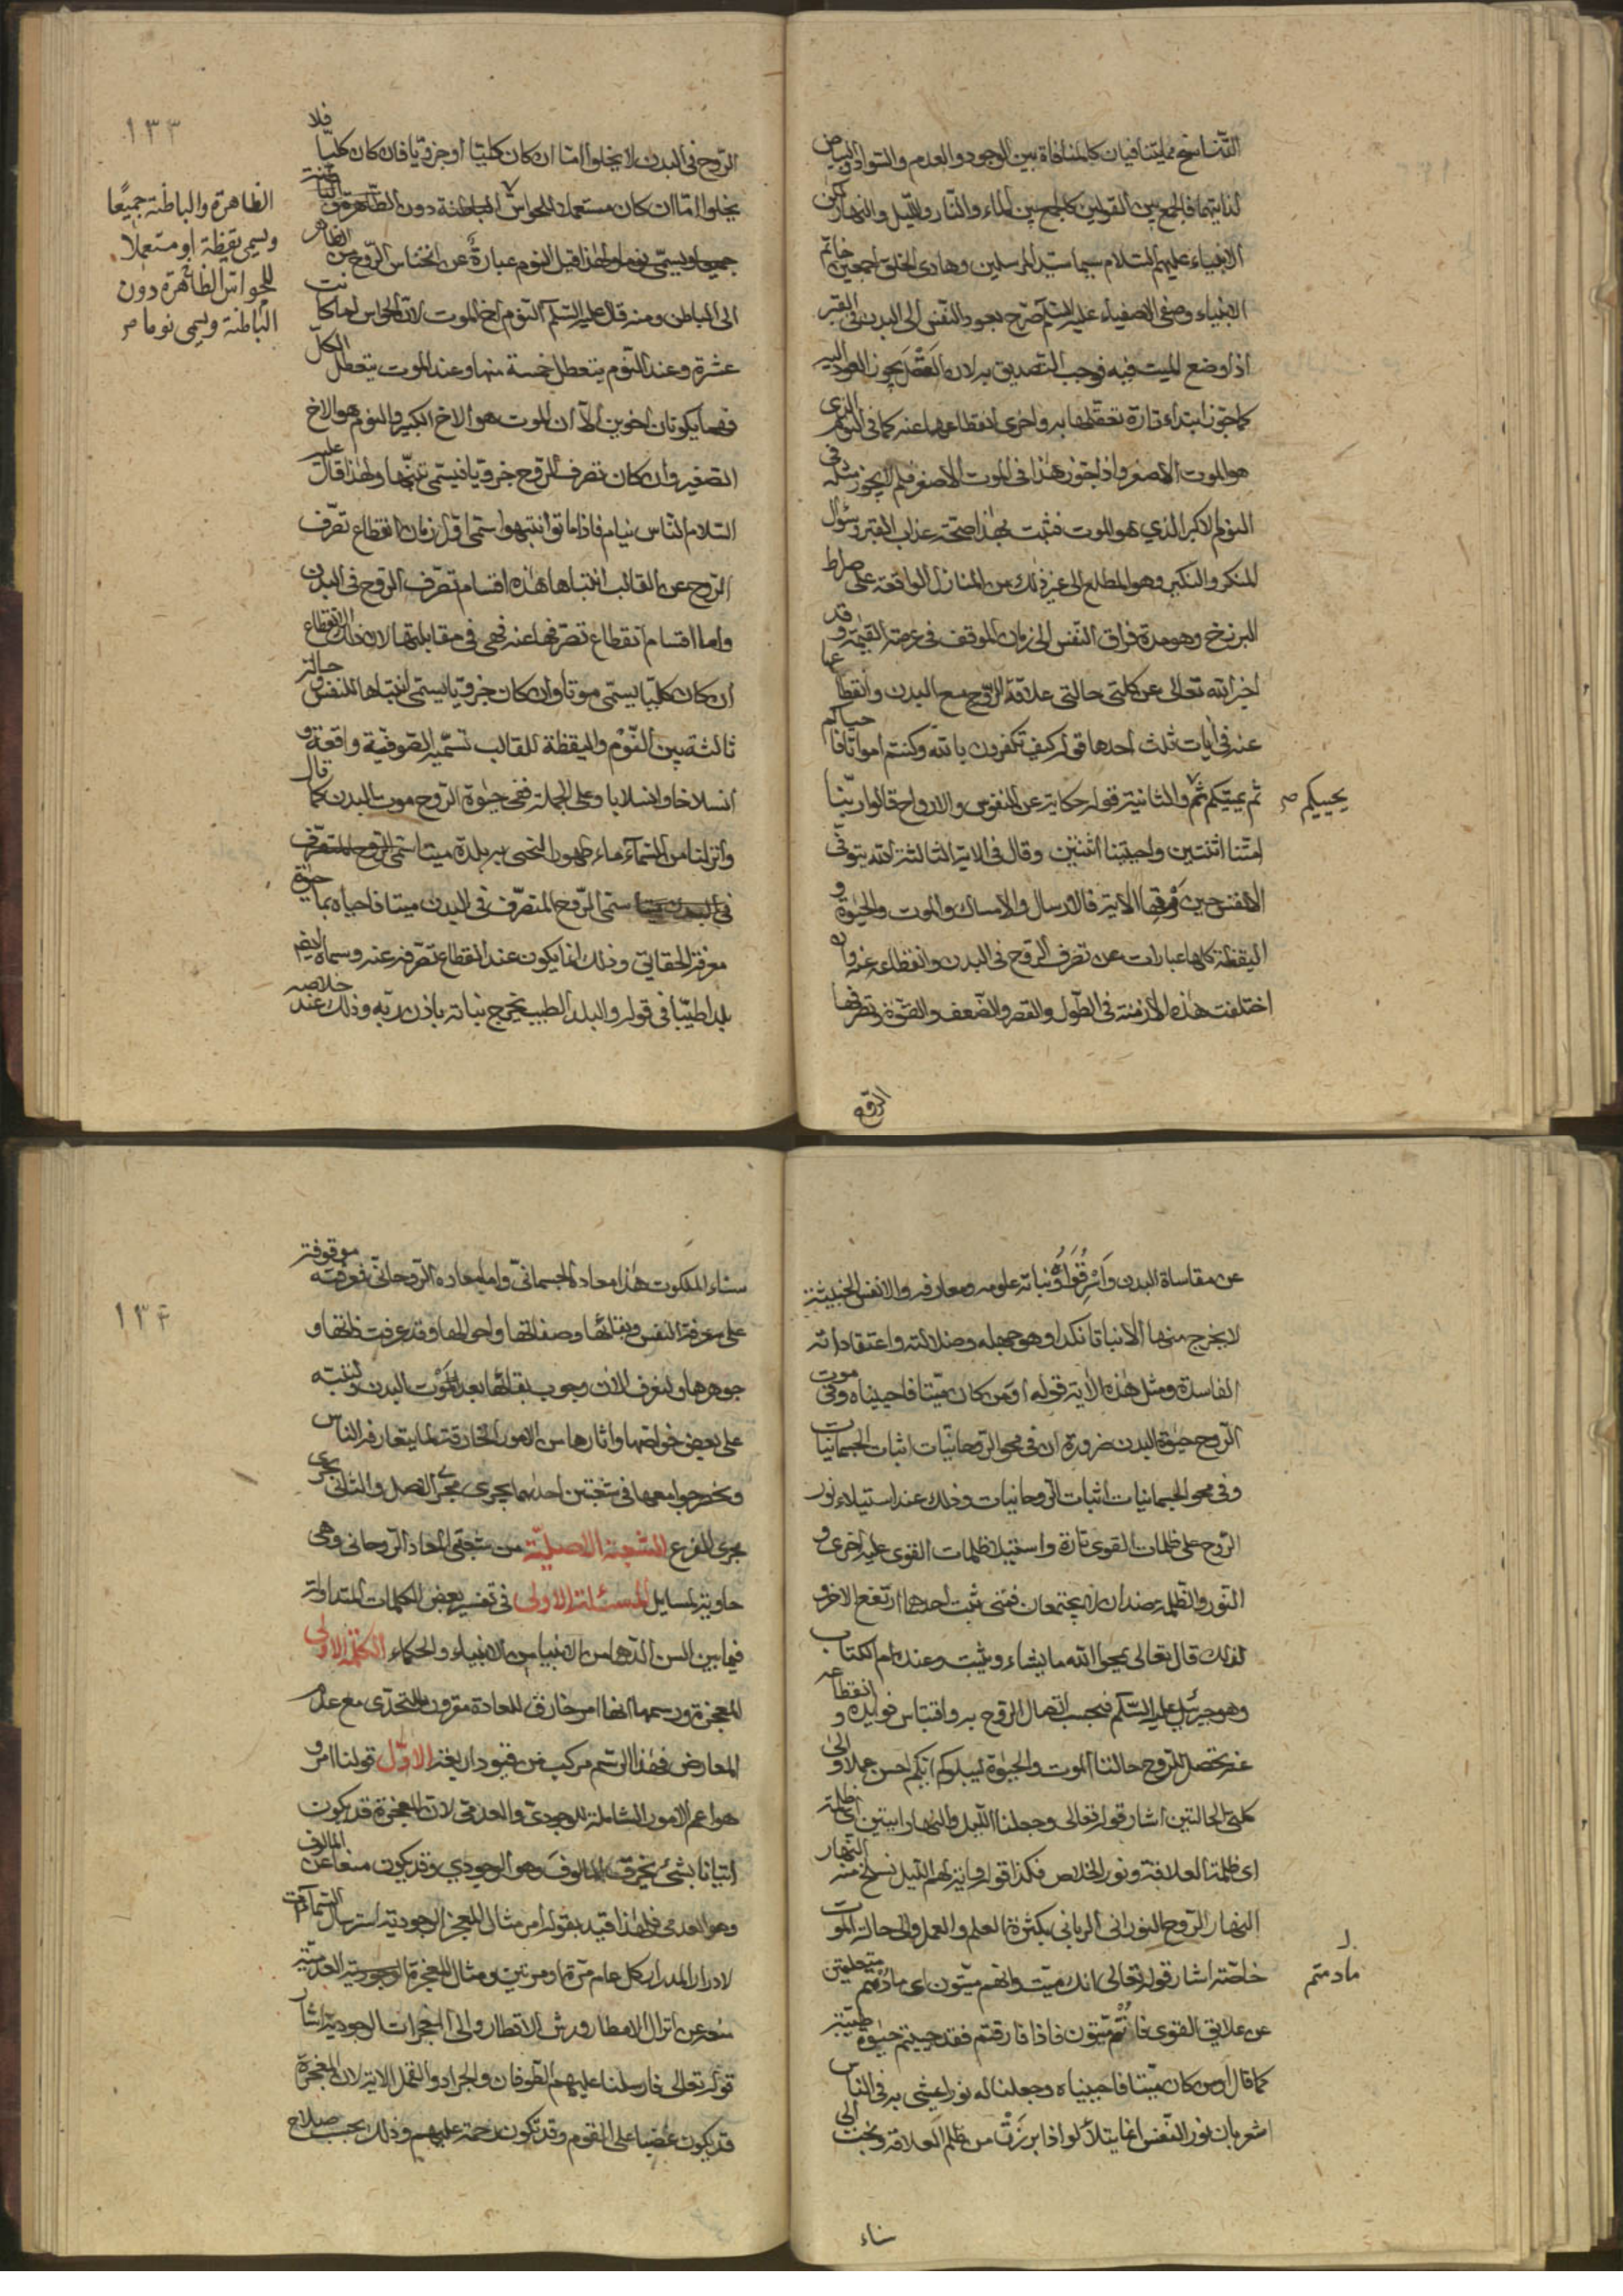 التناسخ مما يتنافيان كالمنافاة بين الوجود والعدم والسواد والبياض
لذاتيتهما فالجمع بين القولين كالجمع بين الماء والنار والليل والنهار لكن
الانبياء عليهم السلام سيما سيد المرسلين وهادي الخلق اجمعين خاتم
الانبياء وصفى الاصفياء عليه السلم صرح بعود النفس الى البدن في القبر
اذا وضع الميت فيه فوجب التصديق به لان العقل يجوز العود اليه
كما جوز ابتداء تارة تعلقها به واخرى انقطاعها عنه كما في النوم الذي
هو الموت الاصغر واذا جوز هذا في الموت الاصغر فلم لا يجوز مثله في
النوم الاكبر الذي هو الموت فثبت بهذا صحة عذاب القبر وسؤال
المنكر والنكير وهو المطلع الى غير ذلك من المنازل الواقعة على صراط
البرزخ وهو مدة فراق النفس الى زمان الموقف في عرصة القيمة وقد
اخبر الله تعالى عن كلتى حالتى علاقة الروح مع البدن وانقطاعها
عنه في آيات ثلث احدها قوله كيف تكفرون بالله وكنتم امواتا فاحياكم
ثم يميتكم ثم والثانية قوله حكاية عن النفوس والارواح قالوا ربنا
يحييكم صح
امتنا اثنتين واحييتنا اثنتين وقال في الاية الثالثة الله يتوفى
الانفس حين موتها الاية فالارسال والامساك والموت والحيوة و
اليقظة كلها عبارات عن تصرف الروح في البدن وانقطاعه عنه وان
اختلفت هذه الازمنة في الطول والقصر والضعف والقوة وتصرفها
الروح
١٣٣
الروح في البدن لا يخلوا اما ان كان كليا او جزويا فان كان كليا فلا
يخلوا اما ان كان مستعملا للحواس الباطنة دون الظاهرة
الظاهرة والباطنة جميعا
ويسمى يقظة او مستعملا
للحواس الظاهرة دون
الباطنة ويسمى نوما صح
جميعا ويسمى نوما ولهذا قيل النوم عبارة عن انخناس الروح من الظاهر
الى الباطن ومنه قال عليه السلم النوم اخ الموت لان الحواس لما كانت
عشرة وعند النوم يتعطل خمسة منها وعند الموت يتعطل الكل
فهما يكونان اخوين الا ان الموت هو الاخ الكبير والنوم هو الاخ
الصغير وان كان تصرف الروح جزويا فيسمى تنبها ولهذا قال عليه
السلام الناس نيام فاذا ماتوا انتبهوا سمى اول زمان انقطاع تصرف
الروح عن القالب انتباها هذه اقسام تصرف الروح في البدن
واما اقسام انقطاع تصرفها عنه فهي في مقابلتها لان ذلك الانقطاع
ان كان كليا يسمى موتا وان كان جزويا يسمى انتباها للنفس و حالة
ثالثة بين النوم واليقظة للقالب تسميه الصوفية واقعة و
انسلاخا وانسلابا وعلى الجملة ففي حيوة الروح موت البدن كما قال
وانزلنا من السماء ماء طهورا لنحيى به بلدة ميتا
سمى الروح المتصرف في البدن ميتا فاحياه بماء حيوة
معرفة الحقايق وذلك انما يكون عند انقطاع تصرفه عنه وسماه ايضا
بلدا طيبا في قوله والبلد الطيب يخرج نباته باذن ربه وذلك عند خلاصه
عن مقاساة البدن ونباته علومه ومعارفه والانفس الخبيثة
لا يخرج منها الا نباتا نكدا وهو جهله وضلالته واعتقاداته
الفاسدة ومثل هذه الاية قوله اومن كان ميتا فاحييناه وفي موت
الروح حيوة البدن ضرورة ان في محو الروحانيات اثبات الجسمانيات
وفي محو الجسمانيات اثبات الروحانيات وذلك عند استيلاء نور
الروح على ظلمات القوى تارة واستيلاء ظلمات القوى عليه اخرى و
النور والظلمة ضدان لا يجتمعان فمتى ثبت احدهما ارتفع الاخر و
لذلك قال تعالى يمحوا الله ما يشاء ويثبت وعنده ام الكتاب
وهو جبرئيل عليه السلم فبحسب اتصال الروح به واقتباس فوايده و انقطاعه
عنه يحصل للروح حالتا الموت والحيوة ليبلوكم ايكم احسن عملا والى
كلتى الحالتين اشار قوله تعالى وجعلنا الليل والنهار ايتين اى ظلمة
اى ظلمة العلاقة ونور الخلاص فكذا قوله واية لهم الليل نسلخ منه النهار
النهار الروح النوراني الرباني بكثرة العلم والعمل والى حالة الموت
خاصته اشار قوله تعالى انك ميت وانهم ميتون اى مادمتم متعلقين
مادمتم
عن علايق القوى فانتم ميتون فاذا فارقتم فقد حييتم حيوة طيبة
كما قال اومن كان ميتا فاحييناه وجعلنا له نورا يمشى به في الناس
اشعر بان نور النفس انما يتلألو اذا برزت من ظلم العلاقة ونجت الى
سناء
١٣٤
سناء الملكوت هذا معاده الجسماني واما معاده الروحاني فمعرفته موقوفة
على معرفة النفس وبقائها وصفاتها واحوالها وقد عرفت ذاتها و
جوهرها ولنعرف الان وجوب بقائها بعد موت البدن ولننبه
على بعض خواصها واثارها من الامور الخارقة لما يتعارفه الناس
ونحصر جوامعها في شجتين احدهما يجرى مجرى الاصل والثاني يجرى
مجرى الفرع الشجنة الاصلية من شجنى المعاد الروحاني وهى
حاوية لمسايل المسئلة الاولى في تفسير بعض الكلمات المتداولة
فيما بين السن الدهاس الانبياء من الانبياء والحكماء الكلمة الاولى
المعجزة ورسمها انها امر خارق للعادة مقرون بالتحدى مع عدم
المعارض فهذا الرسم مركب من قيود اربعة الاول قولنا امر و
هو اعم الامور الشاملة للوجودي والعدمي لان المعجزة قد يكون
اتيانا بشئ يخرق المالوف وهو الوجودي وقد يكون منعا عن المالوف
وهو العدمي فلهذا قيد بقوله امر مثال المعجز الوجودية استرسال السماء
لادرار المدرار كل عام مرة او مرتين ومثال المعجزة العدمية
منعه عن انزال الامطار ورش الاقطار والى المعجزات الوجودية اشار
قوله تعالى فارسلنا عليهم الطوفان والجراد والقمل الاية لان المعجزة
قد يكون غضبا على القوم وقد تكون رحمة عليهم وذلك بحسب صلاح